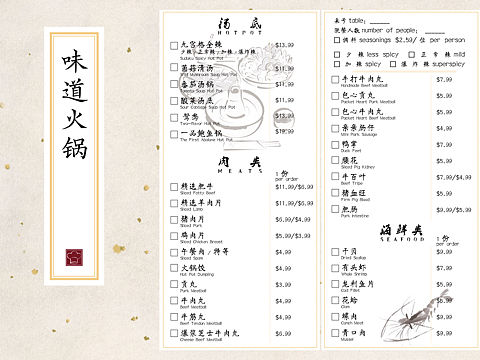 味道火锅
汤底
HOTPOT
九宫格全辣 $13.99
少辣/正常辣/加辣/爆炸辣
Sudsku Spicy Hot Pot
菌菇清汤 $11.99
Wild Mushroom Soup Hot Pot
番茄汤锅 $11.99
Tomato Soup Hot Pot
酸菜汤底 $11.99
Sour Cabbage Soup Hot Pot
鸳鸯 $13.99
Two-Flavor Hot Pot
一品鲍鱼锅 $19.99
The First Abalone Hot Pot
肉类
MEATS
1份
per order
精选肥牛 $11.99/$6.99
Sliced Fatty Beef
精选羊肉片 $11.99/$6.99
Sliced Lamb
猪肉片 $6.99/$4.99
Sliced Pork
鸡肉片 $5.99/$3.99
Sliced Chicken Breast
午餐肉/特等 $4.99
Sliced Spam
火锅饺 $4.99
Hot Pot Dumpling
贡丸 $3.99
Pork Meatball
牛肉丸 $4.99
Beef Meatball
牛筋丸 $4.99
Beef Tendon Meatball
爆浆芝士牛肉丸 $6.99
Cheese Beef Meatball
桌号 table: ______
就餐人数 number of people: ______
调料 seasonings $2.59/位 per person
少辣 less spicy
正常辣 mild
加辣 spicy
爆炸辣 superspicy
手打牛肉丸 $7.99
Handmade Beef Meatball
包心贡丸 $5.99
Pocket Heart Pork Meatball
包心牛肉丸 $5.99
Pocket Heart Beef Meatball
亲亲肠仔 $4.99
Mini Pork Sausage
鸭掌 $7.99
Duck Feet
腰花 $5.99
Sliced Pig Kidney
牛百叶 $7.99/$4.99
Beef Tripe
猪血旺 $5.99
Firm Pig Blood
肥肠 $9.99/$5.99
Pork Intestine
海鲜类
SEAFOOD
1份
per order
干贝 $9.99
Dried Scallop
有头虾 $7.99
Shrimp
龙利鱼片 $5.99
Cod Fillet
花蛤 $6.99
Clam
螺肉 $9.99
Conch Meat
青口肉 $9.99
Mussel